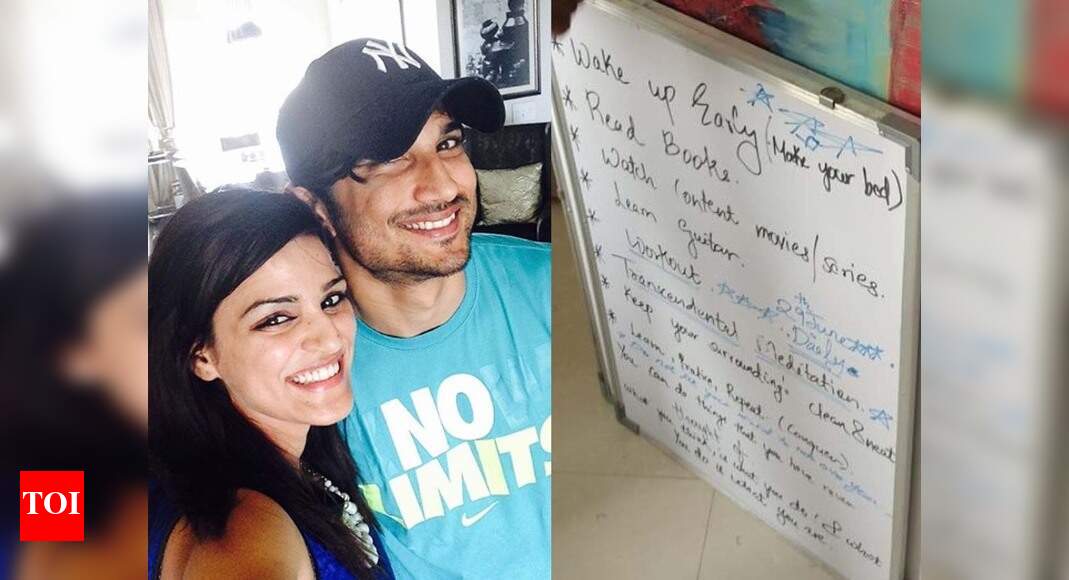 NY
NO LIMITS
TOI
* Wake up Early (Make your bed)
* Read Books.
* Watch Content movies/series.
* Learn Guitar.
* Workout. 29th June
* Transcendental Meditation. Daily
* Keep your surroundings clean & neat
* Learn, Repeat. (Conquer).
You can do things that you have never
thought of
what you think is what you do, & what
You do is what you are.